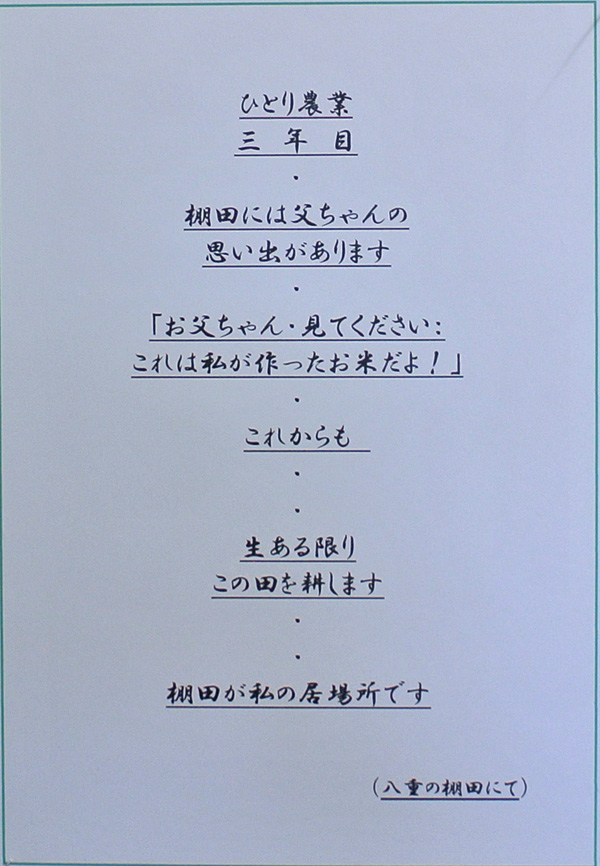 ひとり農業
三　年　目
・
棚田には父ちゃんの
思い出があります
・
「お父ちゃん・見てください:
これは私が作ったお米だよ！」
・
これからも
・
・
生ある限り
この田を耕します
・
・
棚田が私の居場所です
（八重の棚田にて）